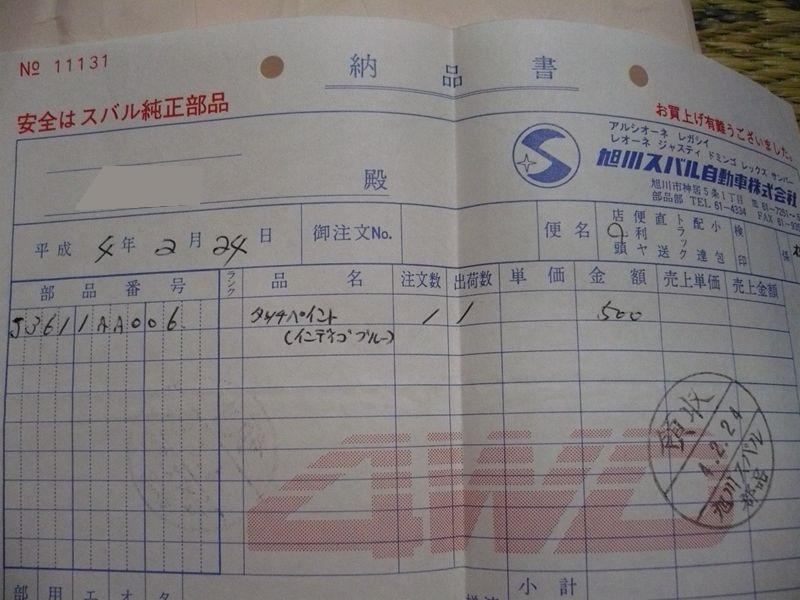 No 11131
納品書
安全はスバル純正部品
お買上げ有難うございました。
アルシオーネ レガシイ
レオーネ ジャスティ ドミンゴ レックス サンバー
旭川スバル自動車株式会社
旭川市神居5条1丁目
部品部 TEL 61-4334 FAX
殿
平成 4年 2月 24日 御注文No. 便名 店頭 便利ヤ 直送 トラック 配達 小包 検印
部品番号 ランク 品名 注文数 出荷数 単価 金額 売上単価 売上金額
J3611AA006 タッチペイント 1 1 500
(インディゴブルー)
領収
4.2.24
旭川スバル
部品
4WD
小計